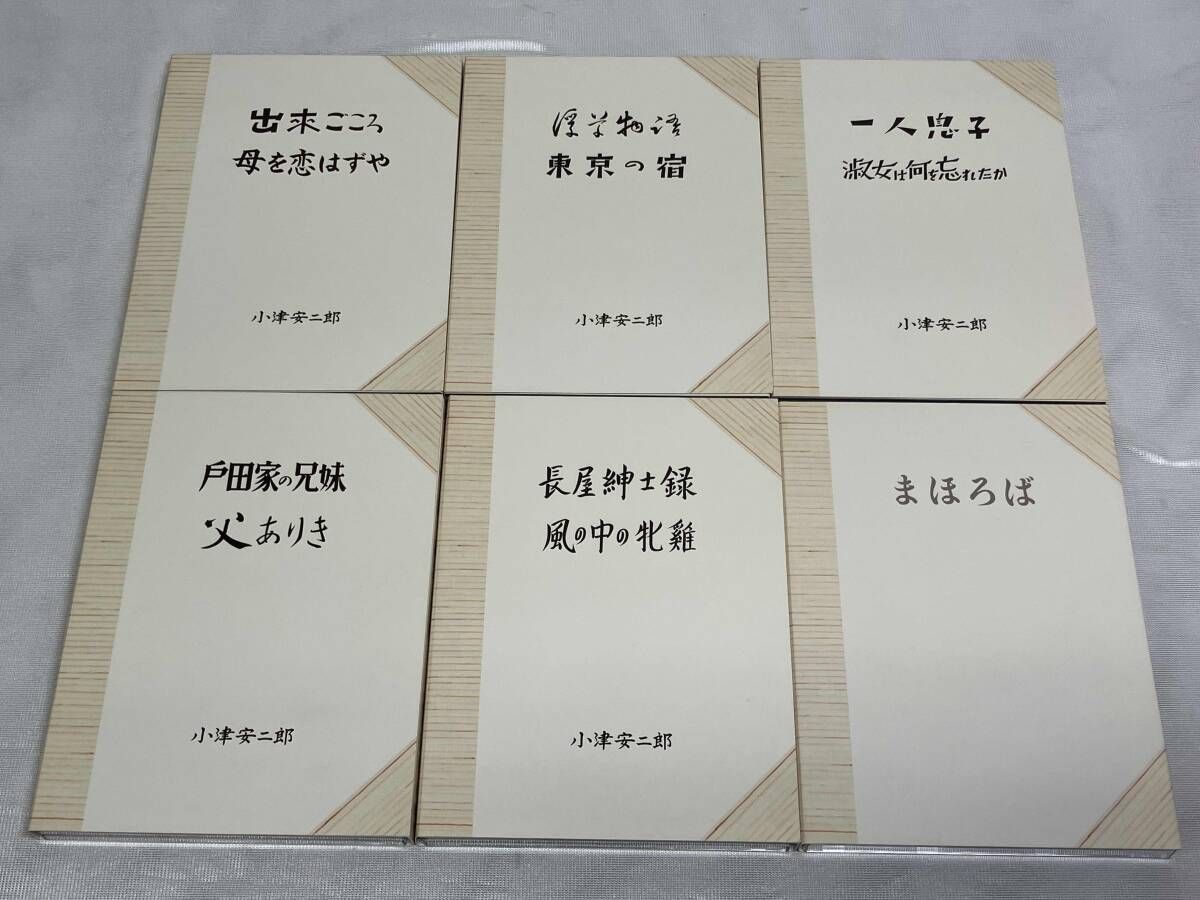 出来ごころ
母を恋はずや
小津安二郎
浮草物語
東京の宿
小津安二郎
一人息子
淑女は何を忘れたか
小津安二郎
戸田家の兄妹
父ありき
小津安二郎
長屋紳士録
風の中の牝雞
小津安二郎
まほろば